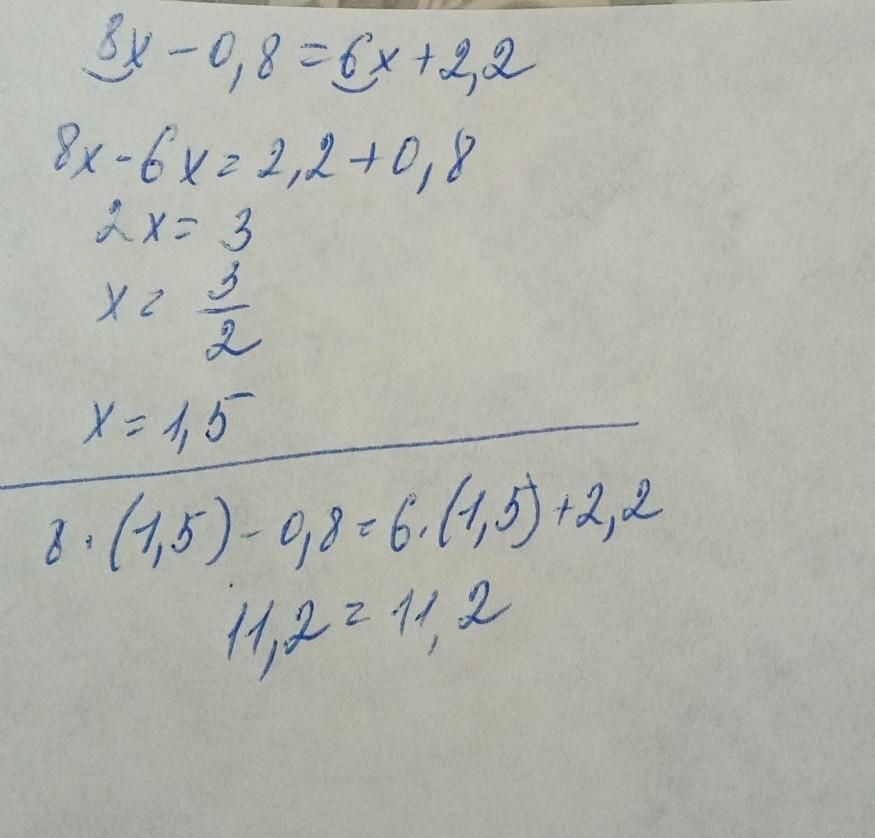 8x - 0,8 = 6x + 2,2
8x - 6x = 2,2 + 0,8
2x = 3
x = 3/2
x = 1,5
8 · (1,5) - 0,8 = 6 · (1,5) + 2,2
11,2 = 11,2